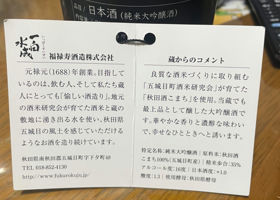 品目/日本酒(純米大吟醸酒)
一白水成
福禄寿酒造株式会社
元禄元(1688)年創業。目指して
いるのは、飲む人、そして私たち蔵
人にとっても「愉しい酒造り」。地元
の酒米研究会が育てた酒米と蔵の
敷地に湧き出る水を使い、秋田県
五城目の風土を感じていただける
ようなお酒を造り続けています。
秋田県南秋田郡五城目町字下夕町48
TEL 018-852-4130
http://www.fukurokuju.jp/
蔵からのコメント
良質な酒米づくりに取り組む
「五城目町酒米研究会」が育てた
「秋田酒こまち」を使用。当蔵でも
最上品として醸した大吟醸酒で
す。華やかな香りと濃醇な味わい
で、幸せなひとときへと誘います。
特定名称:純米大吟醸酒/原料米:秋田酒
こまち100%(五城目町産)/精米歩合:35%
アルコール度:16度/日本酒度:+1.0
酸度:1.3/使用酵母:秋田県酵母